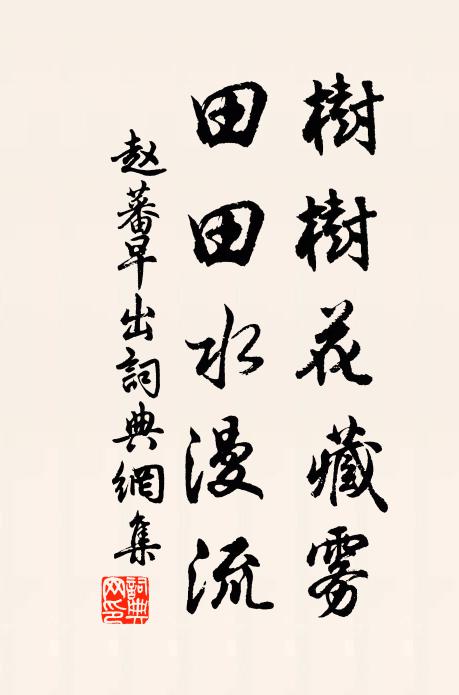 樹樹花藏雾
田田水漫流
赵蕃早出詞典網集
詞典网印